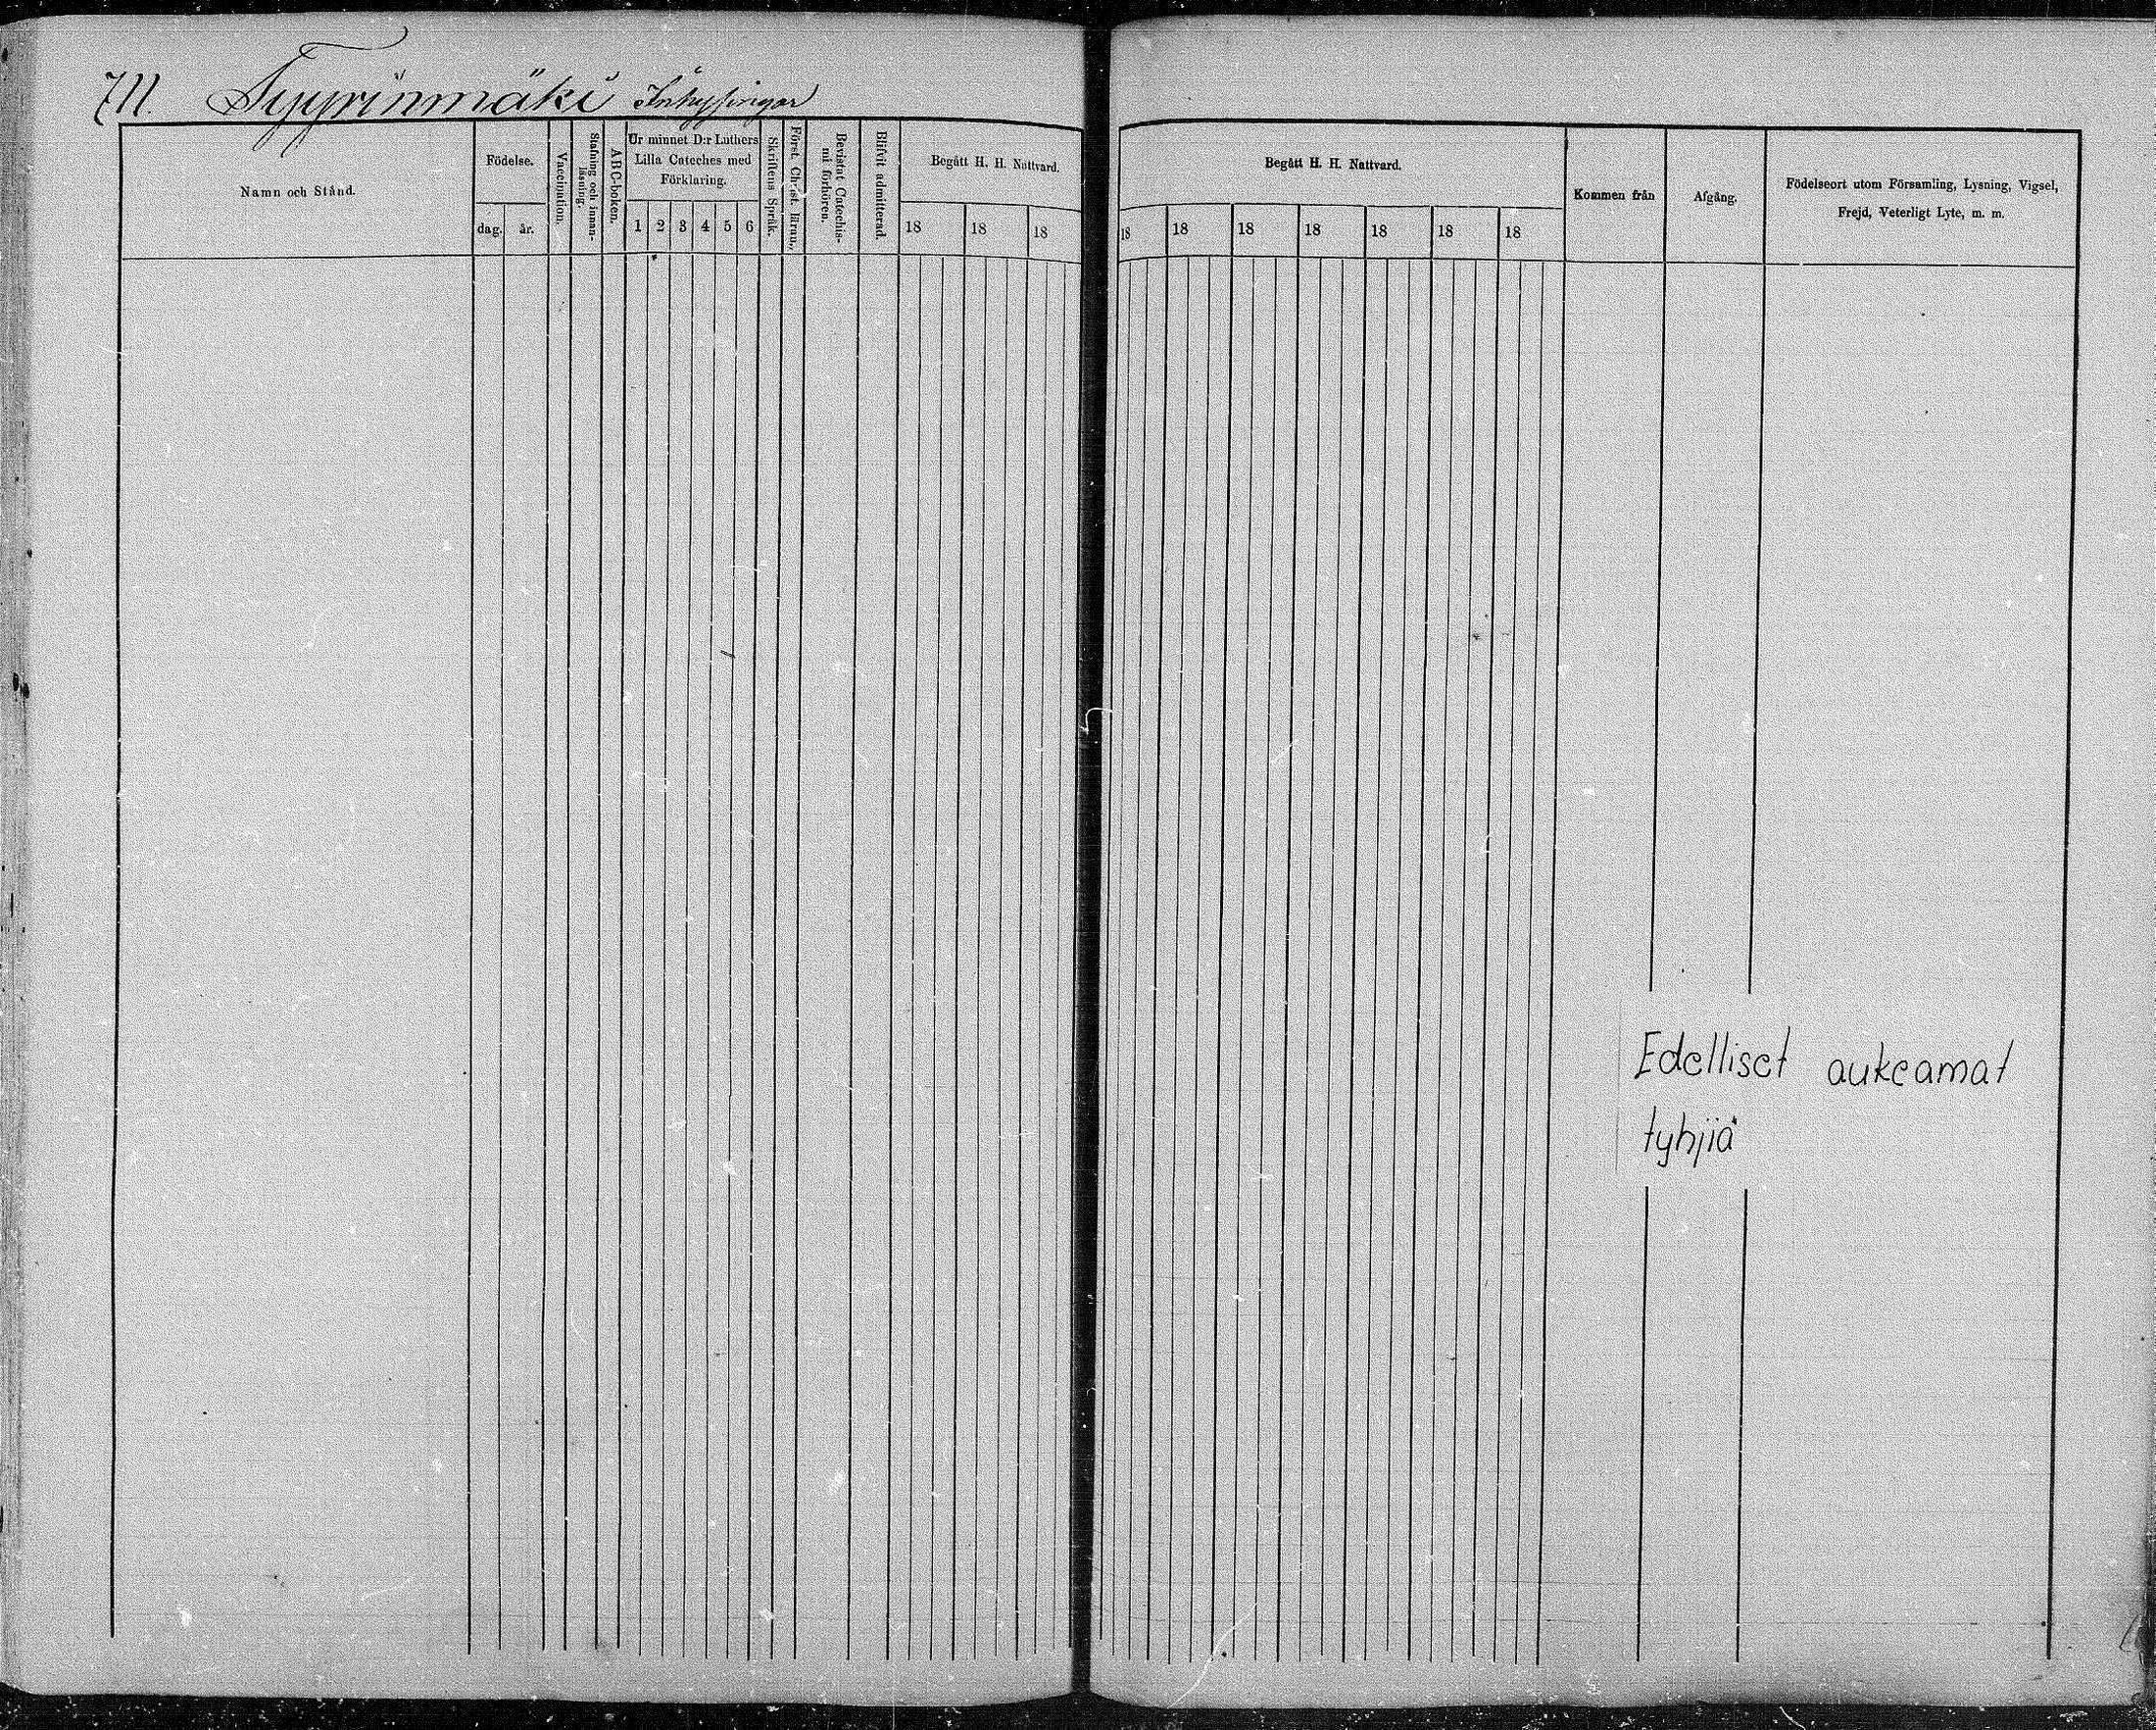 711. Tyyrinmäki Inhysingar
Namn och Stånd.
Födelse.
dag. år.
Vaccination.
Stafning och innan-
läsning.
ABC-boken.
Ur minnet D:r Luthers
Lilla Cateches med
Förklaring.
1 2 3 4 5 6
Skriftens Språk.
Först. Christ. läran.
Bevistat Catechis-
mi förhören.
Blifvit admitterad.
Begått H. H. Nattvard.
18 18 18
Begått H. H. Nattvard.
18 18 18 18 18 18 18
Kommen från
Afgång.
Födelseort utom Församling, Lysning, Vigsel,
Frejd, Veterligt Lyte, m. m.
Edelliset aukeamat
tyhjiä